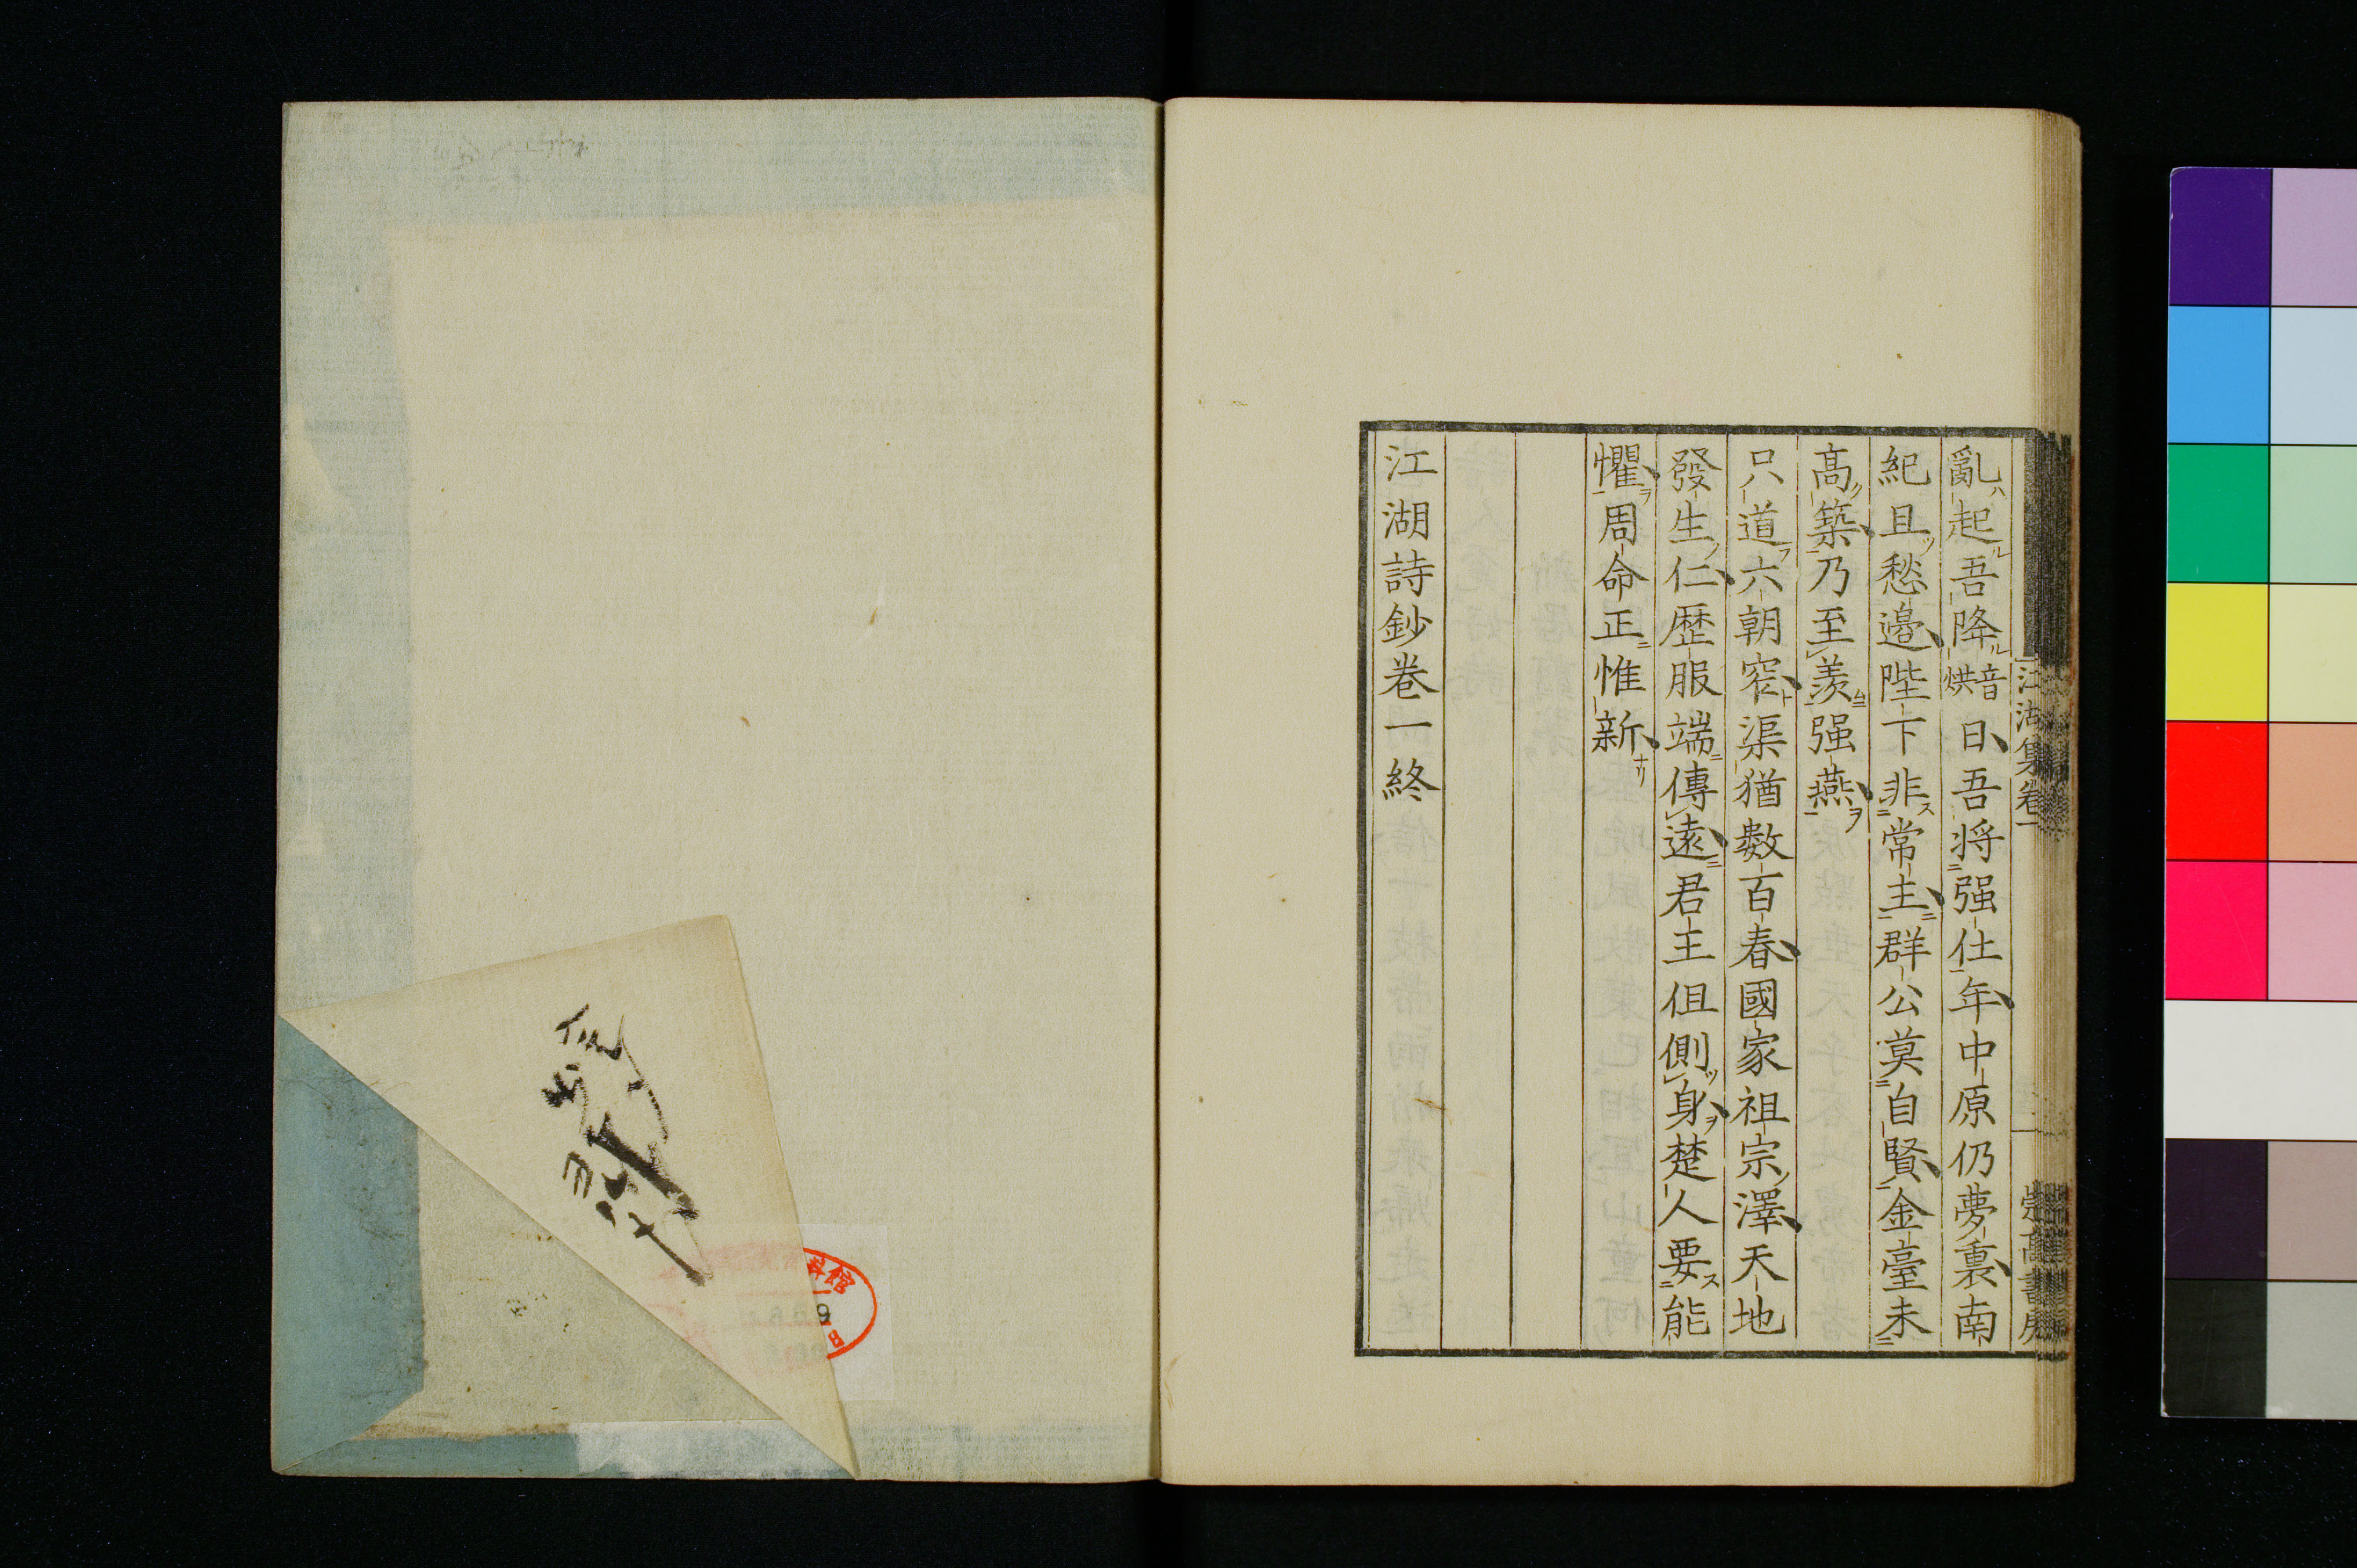 亂起吾降音烘日吾將强仕年中原仍夢裏南
紀且愁邊陛下非常主群公莫自賢金臺未
高築乃至羨强燕
只道六朝窄渠猶數百春國家祖宗澤天地
發生仁歴服端傳遠君王但側身楚人要能
懼周命正惟新
江湖詩鈔卷一終
江湖集卷一